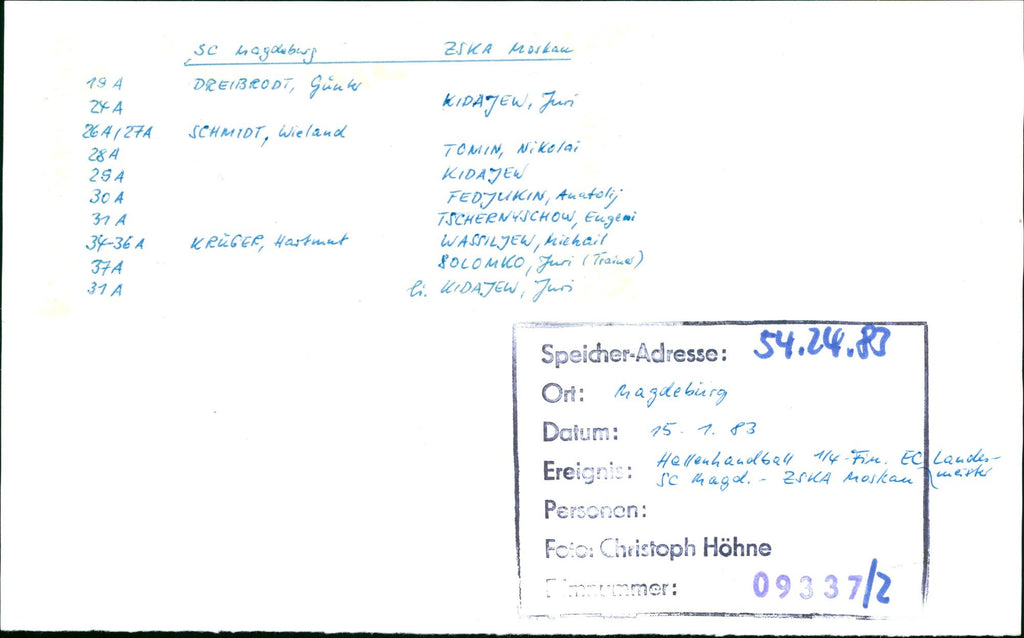 SC Magdeburg ZSKA Moskau
19 A DREIBRODT, Günter
24 A KIDAJEW, Juri
26A/27A SCHMIDT, Wieland
28 A TOMIN, Nikolai
29 A KIDAJEW
30 A FEDJUKIN, Anatolij
31 A TSCHERNYSCHOW, Eugeni
34-36 A KRÜGER, Hartmut WASSILJEW, Michail
37A SOLOMKO, Juri (Trainer)
31 A li. KIDAJEW, Juri
Speicher-Adresse: 54.24.83
Ort: Magdeburg
Datum: 15. 1. 83
Ereignis: Hallenhandball 1/4-Fin. EC Landes-
SC Magd. - ZSKA Moskau meister
Personen:
Foto: Christoph Höhne
Filmnummer: 09337/2